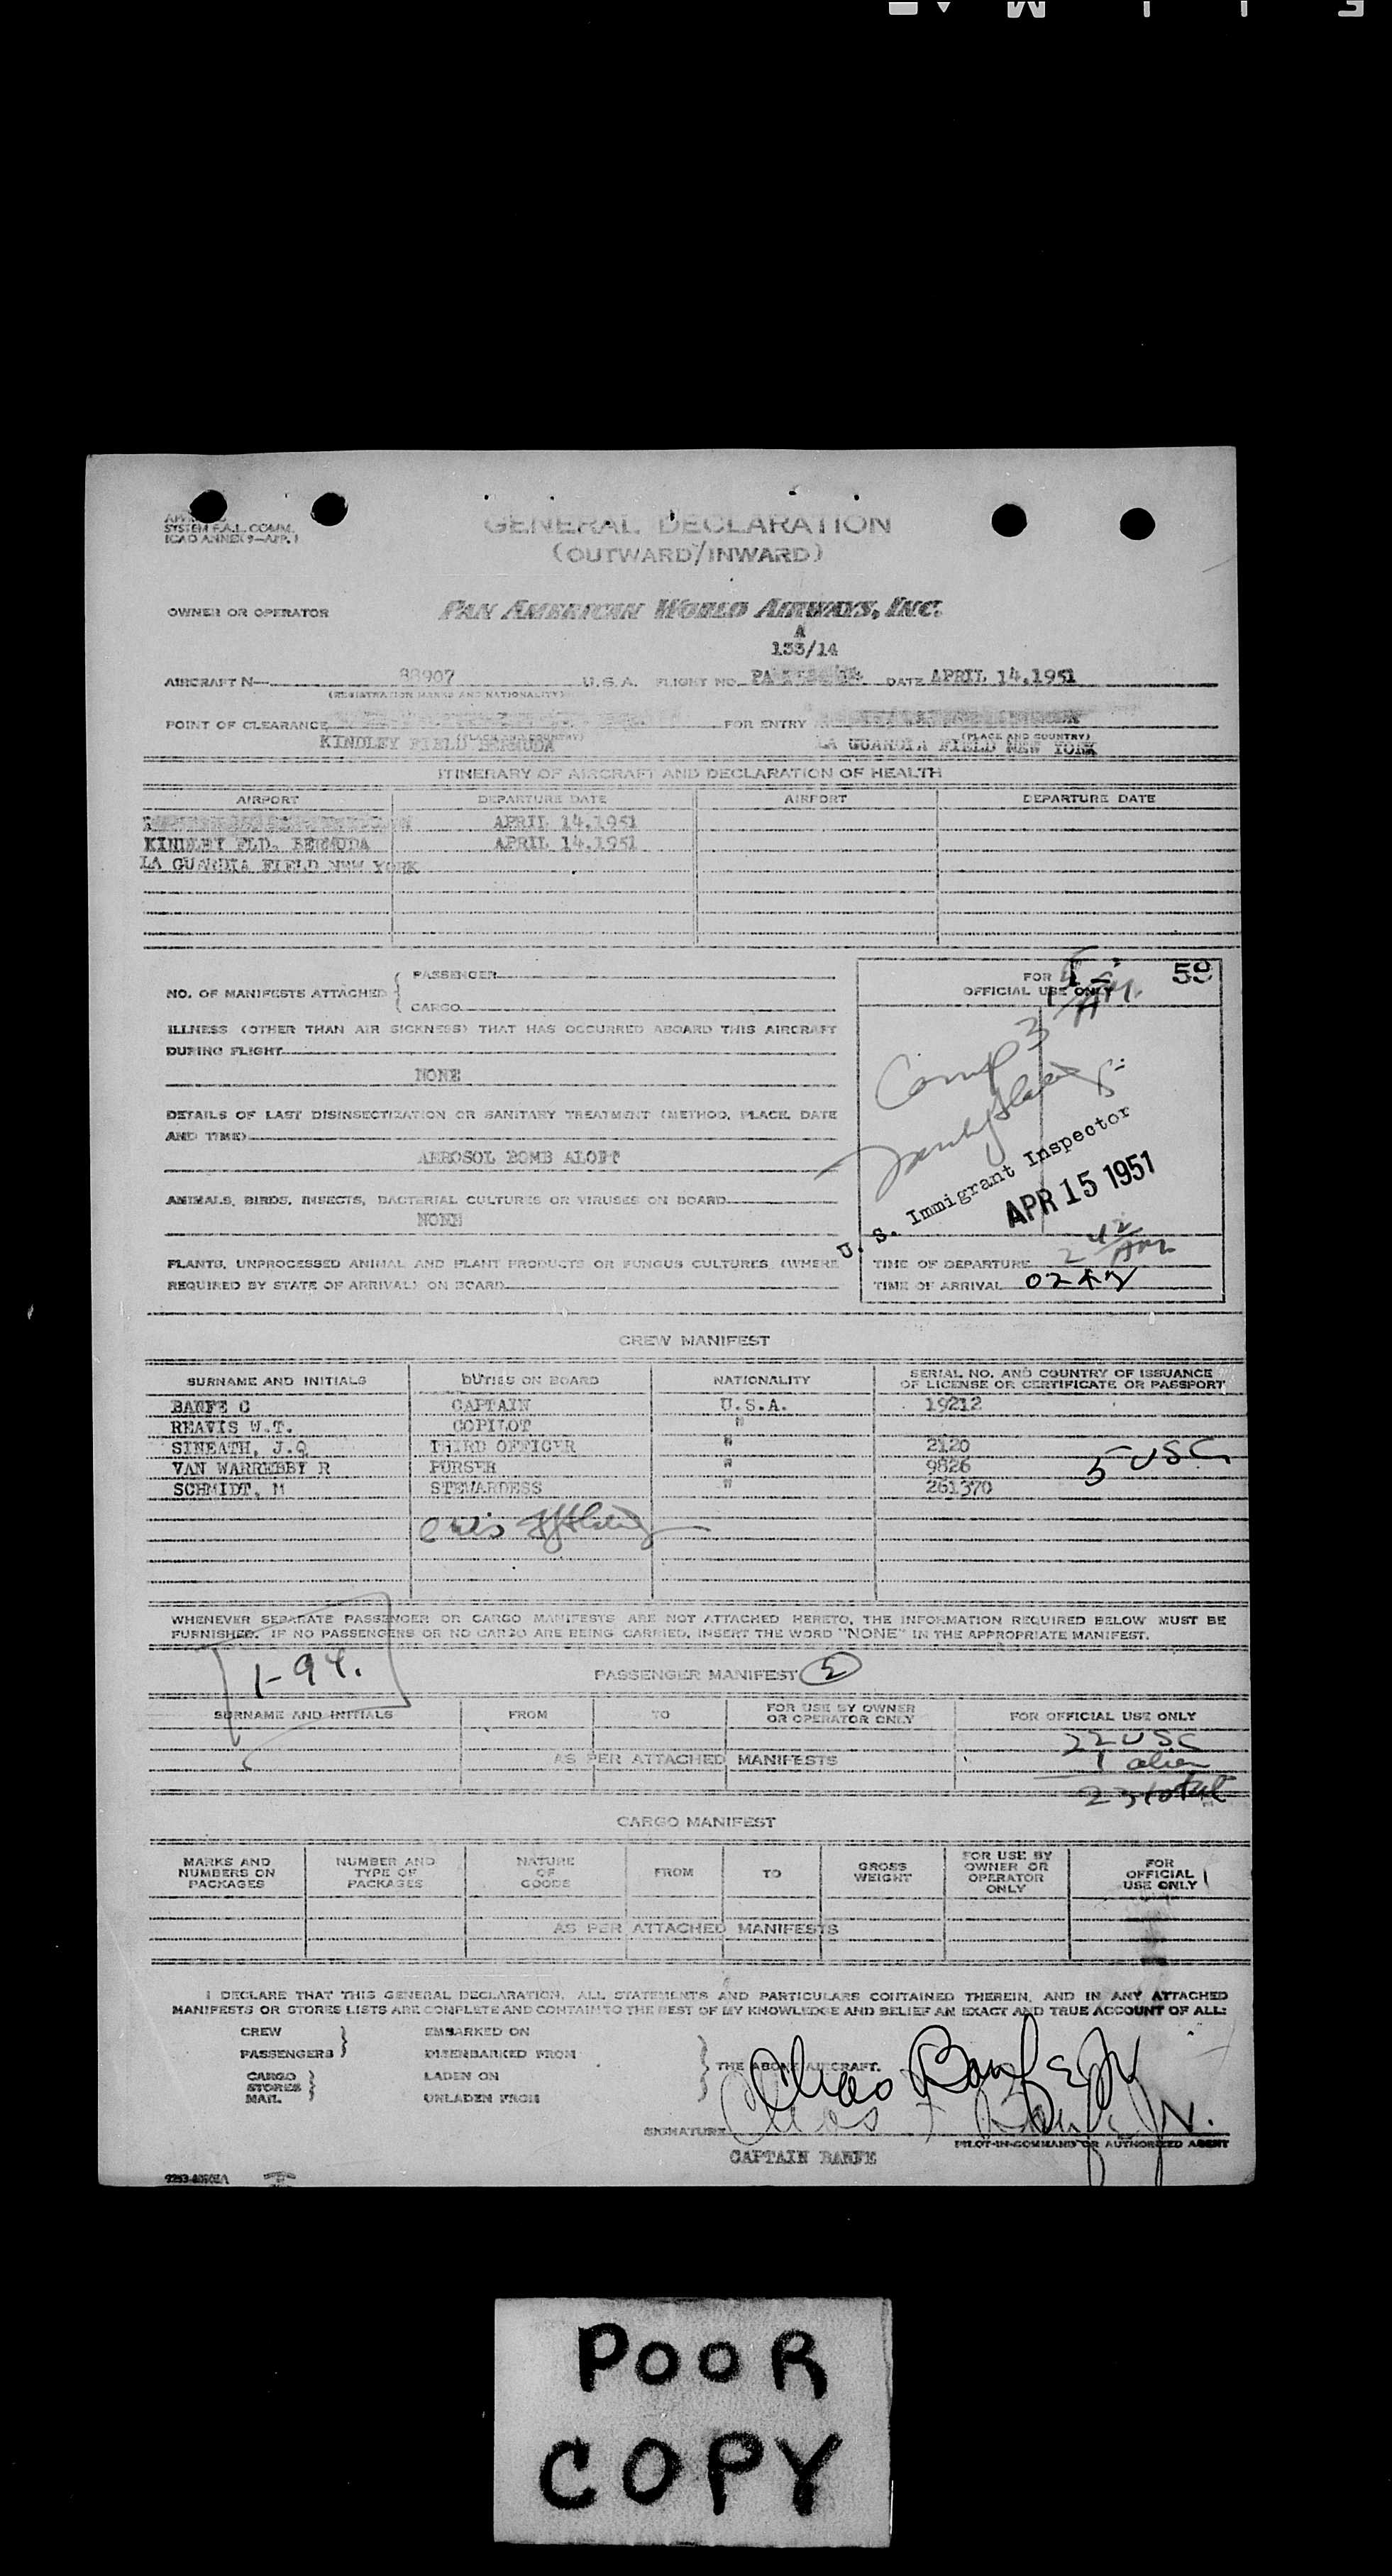 SYSTEM F.A.L. COMM.
(ICAO ANNEX 9—APP. )
GENERAL DECLARATION
(OUTWARD/INWARD)
OWNER OR OPERATOR PAN AMERICAN WORLD AIRWAYS, INC.
A
133/14
AIRCRAFT N— 88907 U.S.A. FLIGHT NO. PA DATE APRIL 14,1951
(REGISTRATION MARKS AND NATIONALITY)
POINT OF CLEARANCE FOR ENTRY
(PLACE AND COUNTRY) (PLACE AND COUNTRY)
KINDLEY FIELD BERMUDA LA GUARDIA FIELD NEW YORK
ITINERARY OF AIRCRAFT AND DECLARATION OF HEALTH
AIRPORT DEPARTURE DATE AIRPORT DEPARTURE DATE
APRIL 14,1951
KINDLEY FLD. BERMUDA APRIL 14,1951
LA GUARDIA FIELD NEW YORK
NO. OF MANIFESTS ATTACHED { PASSENGER
CARGO
FOR OFFICIAL USE ONLY 59
ILLNESS (OTHER THAN AIR SICKNESS) THAT HAS OCCURRED ABOARD THIS AIRCRAFT
DURING FLIGHT
NONE
Comp 3
DETAILS OF LAST DISINSECTIZATION OR SANITARY TREATMENT (METHOD, PLACE, DATE
AND TIME)
AEROSOL BOMB ALOFT
U. S. Immigrant Inspector
APR 15 1951
ANIMALS, BIRDS, INSECTS, BACTERIAL CULTURES OR VIRUSES ON BOARD
NONE
PLANTS, UNPROCESSED ANIMAL AND PLANT PRODUCTS OR FUNGUS CULTURES (WHERE
REQUIRED BY STATE OF ARRIVAL) ON BOARD
2 42 AM
TIME OF DEPARTURE
TIME OF ARRIVAL 0242
CREW MANIFEST
SURNAME AND INITIALS DUTIES ON BOARD NATIONALITY SERIAL NO. AND COUNTRY OF ISSUANCE OF LICENSE OR CERTIFICATE OR PASSPORT
BANFE C CAPTAIN U.S.A. 19212
REAVIS W.T. COPILOT "
SINEATH, J.Q THIRD OFFICER " 2120
VAN WARREBBY R PURSER " 9826
SCHMIDT, M STEWARDESS " 261370
5 USC
WHENEVER SEPARATE PASSENGER OR CARGO MANIFESTS ARE NOT ATTACHED HERETO, THE INFORMATION REQUIRED BELOW MUST BE
FURNISHED. IF NO PASSENGERS OR NO CARGO ARE BEING CARRIED, INSERT THE WORD "NONE" IN THE APPROPRIATE MANIFEST.
1-94.
PASSENGER MANIFEST
SURNAME AND INITIALS FROM TO FOR USE BY OWNER OR OPERATOR ONLY FOR OFFICIAL USE ONLY
22 USC
AS PER ATTACHED MANIFESTS 1 alien
23 total
CARGO MANIFEST
MARKS AND NUMBERS ON PACKAGES NUMBER AND TYPE OF PACKAGES NATURE OF GOODS FROM TO GROSS WEIGHT FOR USE BY OWNER OR OPERATOR ONLY FOR OFFICIAL USE ONLY
AS PER ATTACHED MANIFESTS
I DECLARE THAT THIS GENERAL DECLARATION, ALL STATEMENTS AND PARTICULARS CONTAINED THEREIN, AND IN ANY ATTACHED
MANIFESTS OR STORES LISTS ARE COMPLETE AND CONTAIN TO THE BEST OF MY KNOWLEDGE AND BELIEF AN EXACT AND TRUE ACCOUNT OF ALL:
CREW EMBARKED ON
PASSENGERS DISEMBARKED FROM
THE ABOVE AIRCRAFT.
CARGO LADEN ON
STORES
MAIL UNLADEN FROM
SIGNATURE Chas F Banfe Jr.
PILOT-IN-COMMAND OR AUTHORIZED AGENT
CAPTAIN BANFE
POOR
COPY